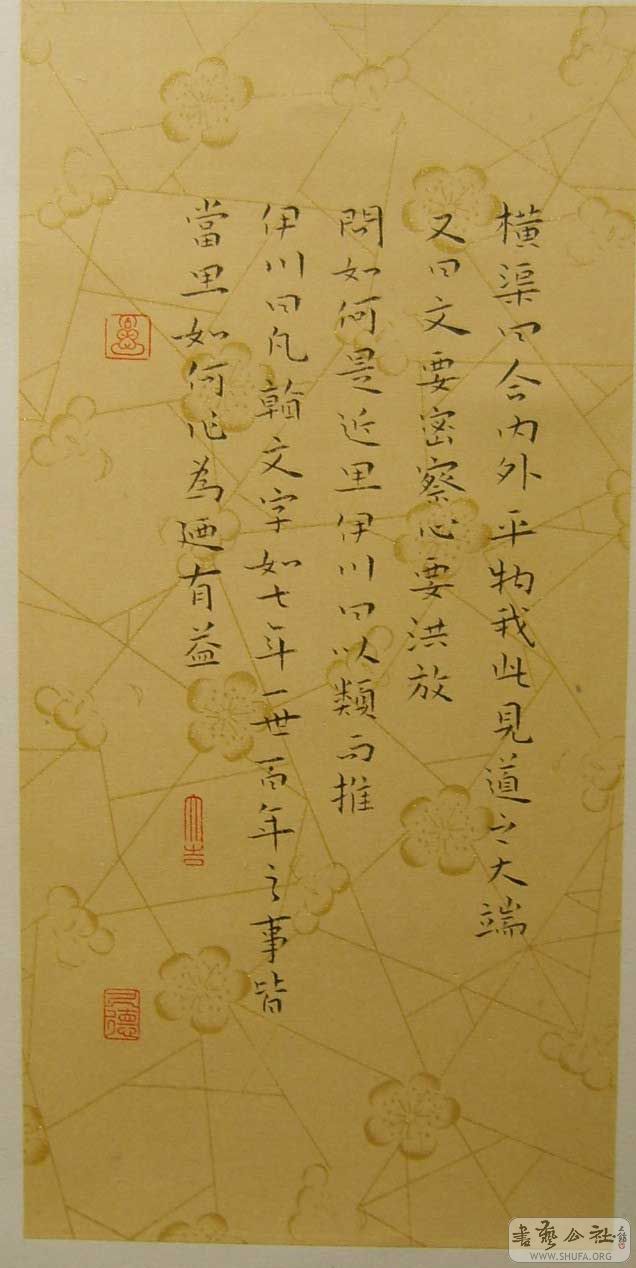 橫渠曰合內外平物我此見道之大端
又曰文要密察心要洪放
問如何是近里伊川曰以類而推
伊川曰凡觧文字如七年一世百年之事皆
當里如何作為廼有益
大吉
書藝公社
WWW.SHUFA.ORG